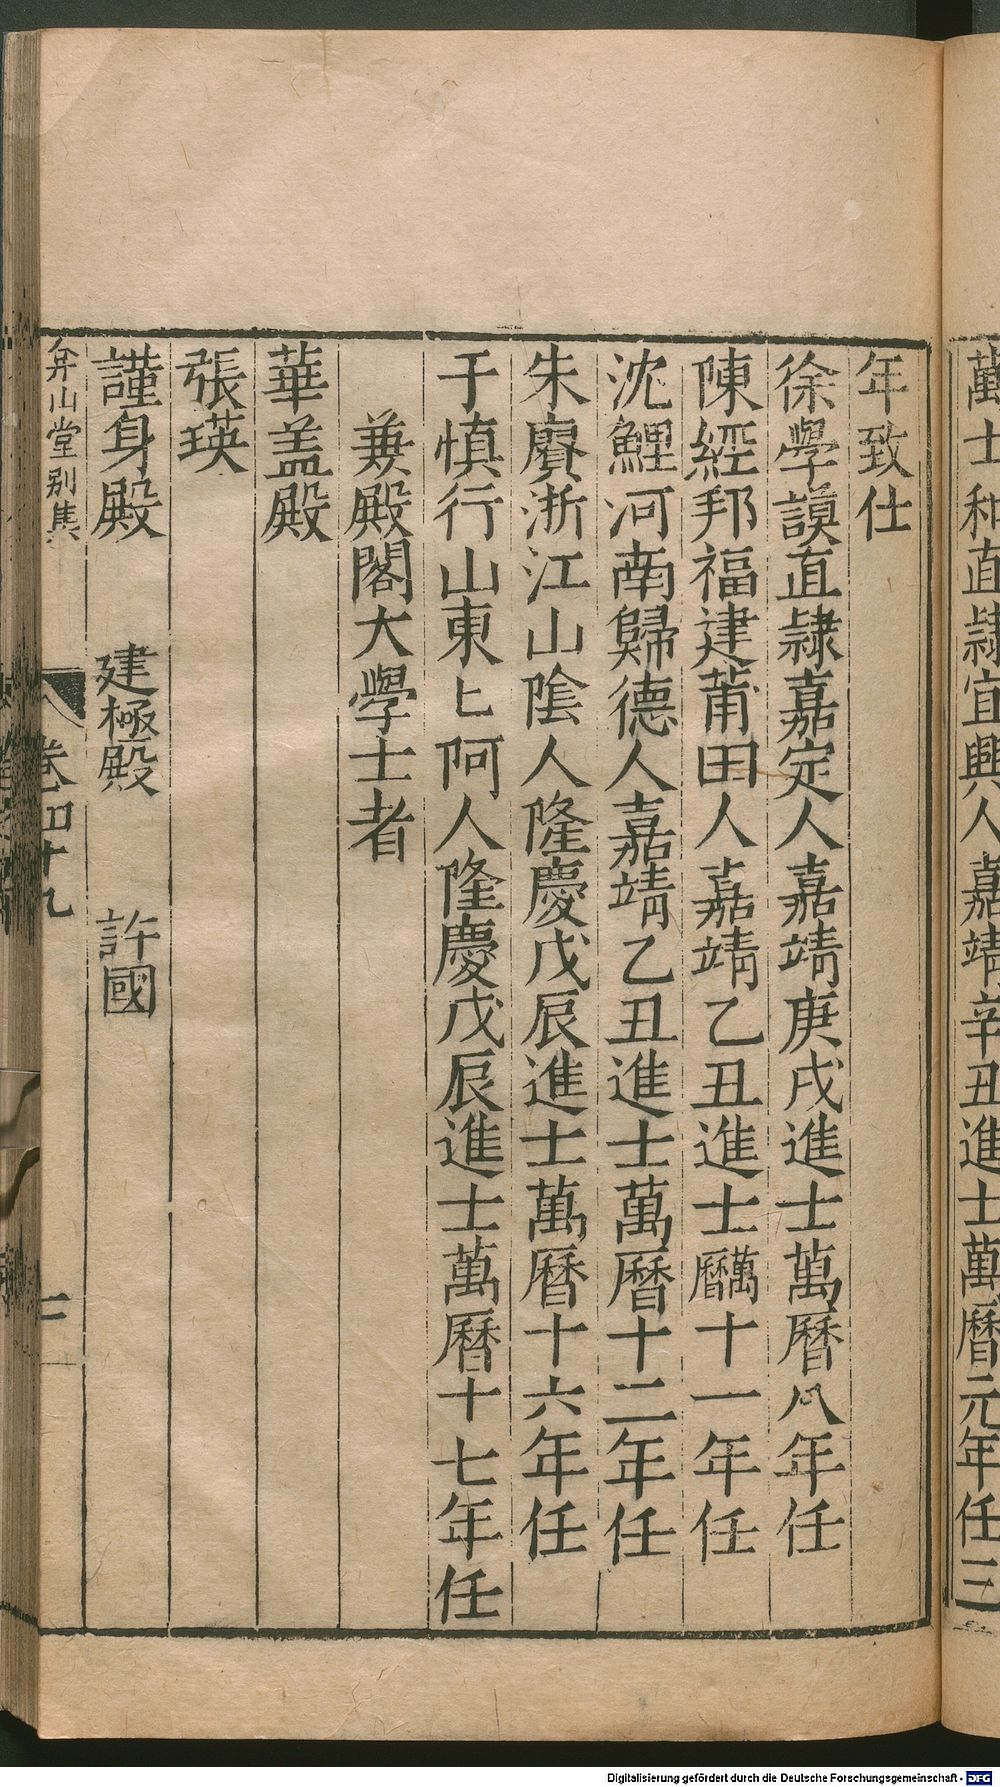 萬士和直隷宜興人嘉靖辛丑進士萬曆元年任三
年致仕
徐學謨直隷嘉定人嘉靖庚戌進士萬曆八年任
陳經邦福建莆田人嘉靖乙丑進士萬曆十一年任
沈鯉河南歸德人嘉靖乙丑進士萬曆十二年任
朱賡浙江山陰人隆慶戊辰進士萬曆十六年任
于慎行山東匕阿人隆慶戊辰進士萬曆十七年任
兼殿閣大學士者
華盖殿
張瑛
謹身殿 建極殿 許國
弇山堂别集 卷四十九
Digitalisierung gefördert durch die Deutsche Forschungsgemeinschaft - DFG